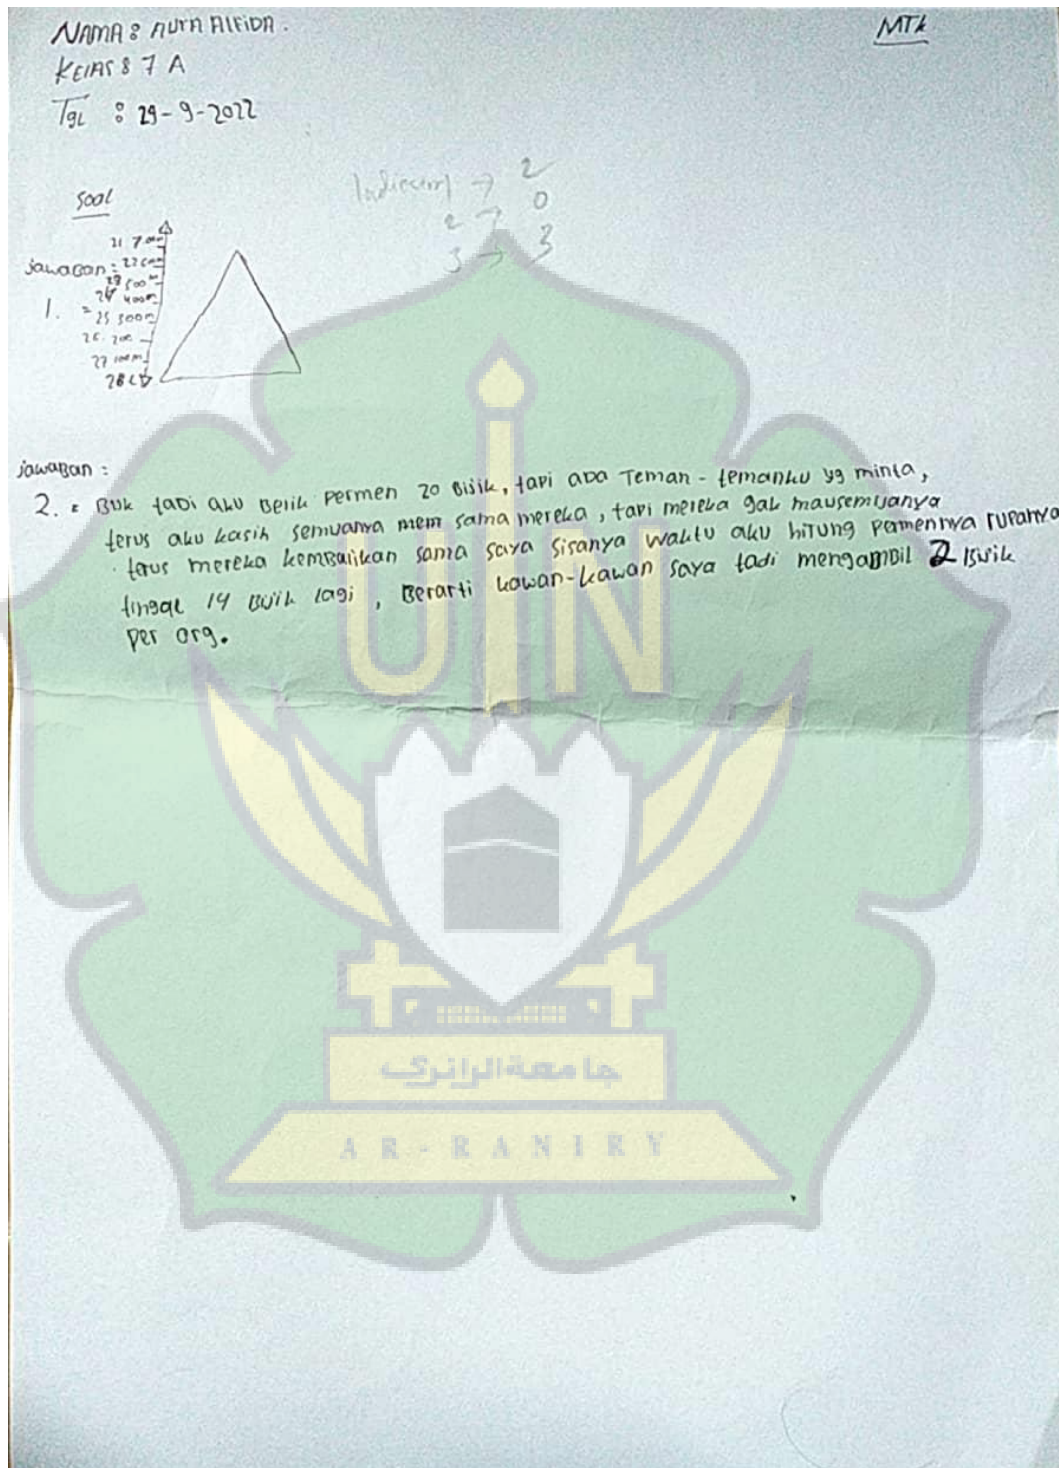 NAMA : AURA ALFIDA.
MTk
KELAS : 7 A
Tgl : 29-9-2022
Indicator 1 → 2
2 → 0
3 → 3
Soal
21 700m
jawaban : 22 600m
23 500m
24 400m
1. = 25 300m
26. 200
27 100m
28 C
jawaban :
2. = Buk tadi aku Belik permen 20 Bijik, tapi ada Teman-temanku yg minta,
terus aku kasih semuanya mem sama mereka, tapi mereka gak mau semuanya
terus mereka kembalikan sama saya sisanya waktu aku hitung permennya rupanya
tinggal 14 Bijik lagi, Berarti kawan-kawan saya tadi mengambil 2 Bijik
per org.
UIN
جامعة الرانري
AR-RANIRY